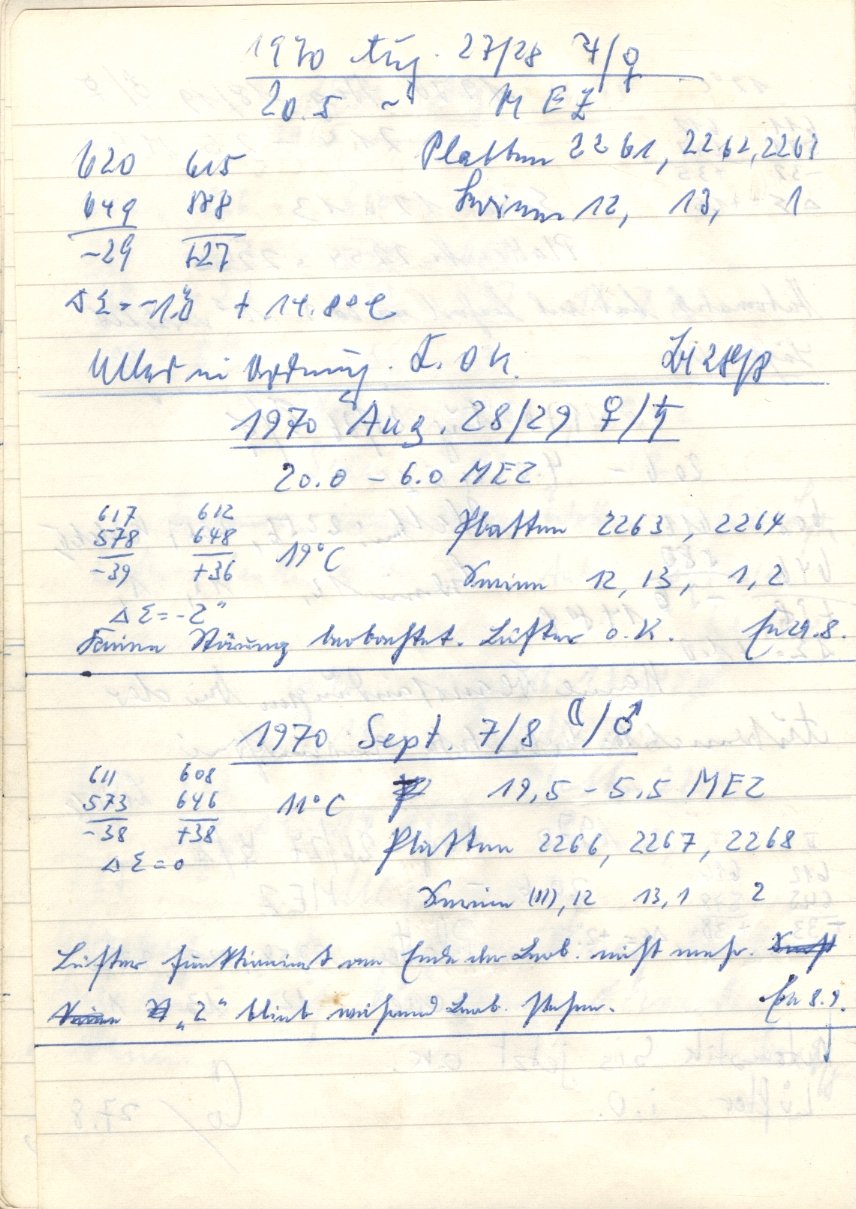 1970 Aug. 27/28 ♃/♀
20.5 – MEZ
620 615 Platten 2261, 2262, 2263
649 588 Serien 12, 13, 1
-29 +27
ΔΣ = -1.0 + 14.8°C
Alles in Ordnung. L. OK.
1970 Aug. 28/29 ♀/♄
20.0 – 6.0 MEZ
617 612 Platten 2263, 2264
578 648 19°C
-39 +36 Serien 12, 13, 1, 2
ΔΣ = -2"
Keine Störung beobachtet. Lüfter o.K. 29.8.
1970 Sept. 7/8 ☾/♂
611 608 19,5 – 5.5 MEZ
573 646 11°C
-38 +38 Platten 2266, 2267, 2268
ΔΣ = 0
Serien (11), 12 13, 1 2
Lüfter funktioniert am Ende der Beob. nicht mehr.
"2" blieb während Beob. stehen. 8.9.